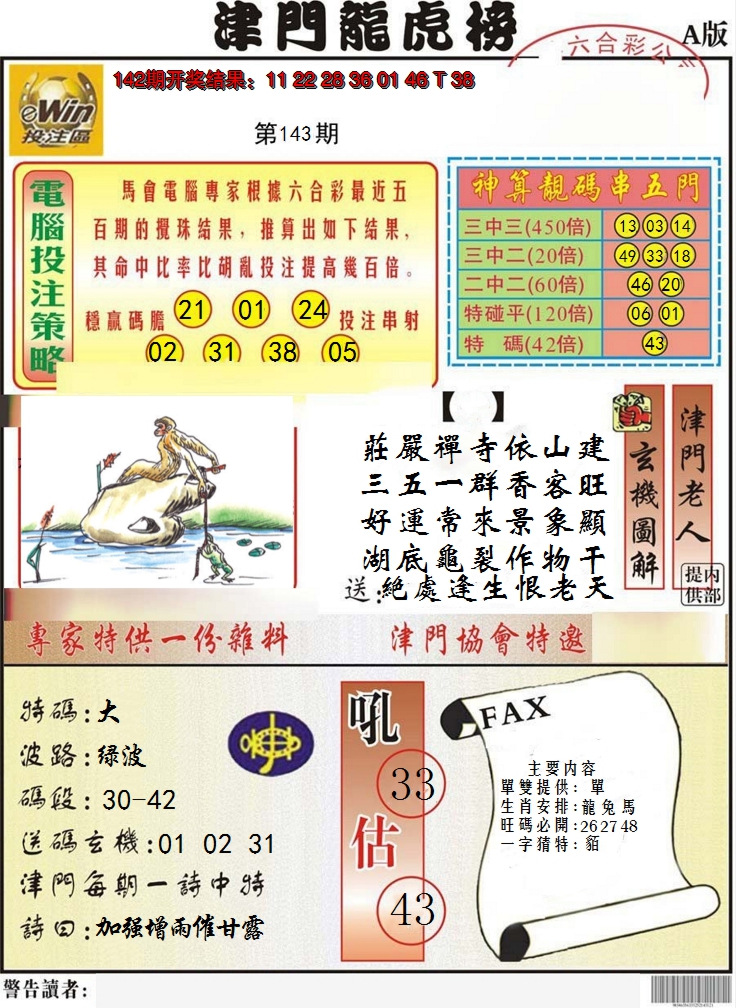 津門龍虎榜
六合彩公
A版
eWin
投注區
142期开奖结果：11 22 28 36 01 46 T 38
第143期
電腦投注策略
馬會電腦專家根據六合彩最近五
百期的攪珠结果，推算出如下结果，
其命中比率比胡亂投注提高幾百倍。
穩贏碼膽 21 01 24 投注串射
02 31 38 05
神算靚碼串五門
三中三(450倍) 13 03 14
三中二(20倍) 49 33 18
二中二(60倍) 46 20
特碰平(120倍) 06 01
特 碼(42倍) 43
【 】
莊嚴禪寺依山建
三五一群香客旺
好運常來景象顯
湖底龜裂作物干
送:絶處逢生恨老天
玄機圖解
津門老人
内部提供
專家特供一份雜料
津門協會特邀
特碼:大
波路:绿波
碼段:30-42
送碼玄機:01 02 31
津門每期一詩中特
詩曰:加强增雨催甘露
吼
33
估
43
FAX
主要内容
單雙提供：單
生肖安排:龍兔馬
旺碼必開:262748
一字猜特：貊
警告讀者：